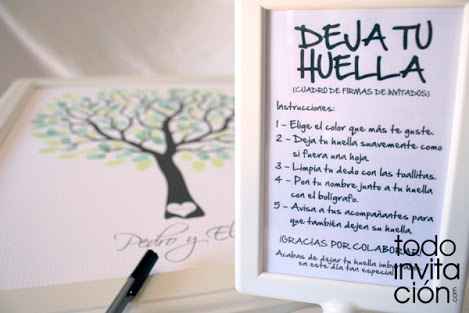 DEJA TU
HUELLA
(CUADRO DE FIRMAS DE INVITADOS)
Instrucciones:
1 - Elige el color que más te guste.
2 - Deja tu huella suavemente como
si fuera una hoja.
3 - Limpia tu dedo con las toallitas.
4 - Pon tu nombre junto a tu huella
con el bolígrafo.
5 - Avisa a tus acompañantes para
que también dejen su huella.
¡GRACIAS POR COLABORAR
Acabas de dejar tu huella
en este día tan especial
Pedro y El
todo
invita
ción.com